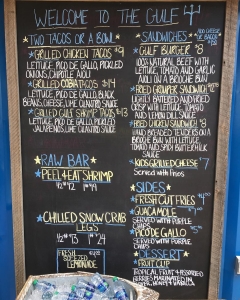 WELCOME TO THE GULF
TWO TACOS OR A BOWL
GRILLED CHICKEN TACOS
LETTUCE, PICO DE GALLO, PICKLED
ONIONS, CHIPOTLE AIOLI
GRILLED COBIA TACOS $14
LETTUCE, PICO DE GALLO, BLACK
BEANS, CHEESE, LIME CILANTRO SAUCE
GRILLED GULF SHRIMP TACOS $13
LETTUCE, PICO DE GALLO, PICKLED
JALAPENOS, LIME CILANTRO SAUCE
RAW BAR
PEEL & EAT SHRIMP
1/2# $12 1# $19
CHILLED SNOW CRAB
LEGS
1/2# $13 1# $24
FRESH
SQUEEZED
LEMONADE
SANDWICHES
ADD CHEESE
OR BACON
GULF BURGER $8
100% NATURAL BEEF WITH
LETTUCE, TOMATO AND GARLIC
AIOLI ON A BRIOCHE BUN
FRIED GROUPER SANDWICH
LIGHTLY BATTERED AND FRIED
CRISP WITH LETTUCE, TOMATO
AND LEMON DILL SAUCE
FRIED CHICKEN SANDWICH $8
HAND BREADED TENDERS ON A
BRIOCHE BUN WITH LETTUCE
TOMATO AND SPICY BUTTERMILK
SAUCE
KIDS GRILLED CHEESE $7
SERVED WITH FRIES
SIDES
FRESH CUT FRIES $4.00
GUACAMOLE
SERVED WITH PURPLE
CHIPS
PICO DE GALLO
SERVED WITH PURPLE
CHIPS
DESSERT
FRUIT CUP
TROPICAL FRUIT & ASSORTED
BERRIES MARINATED IN
HONEY & VANILLA